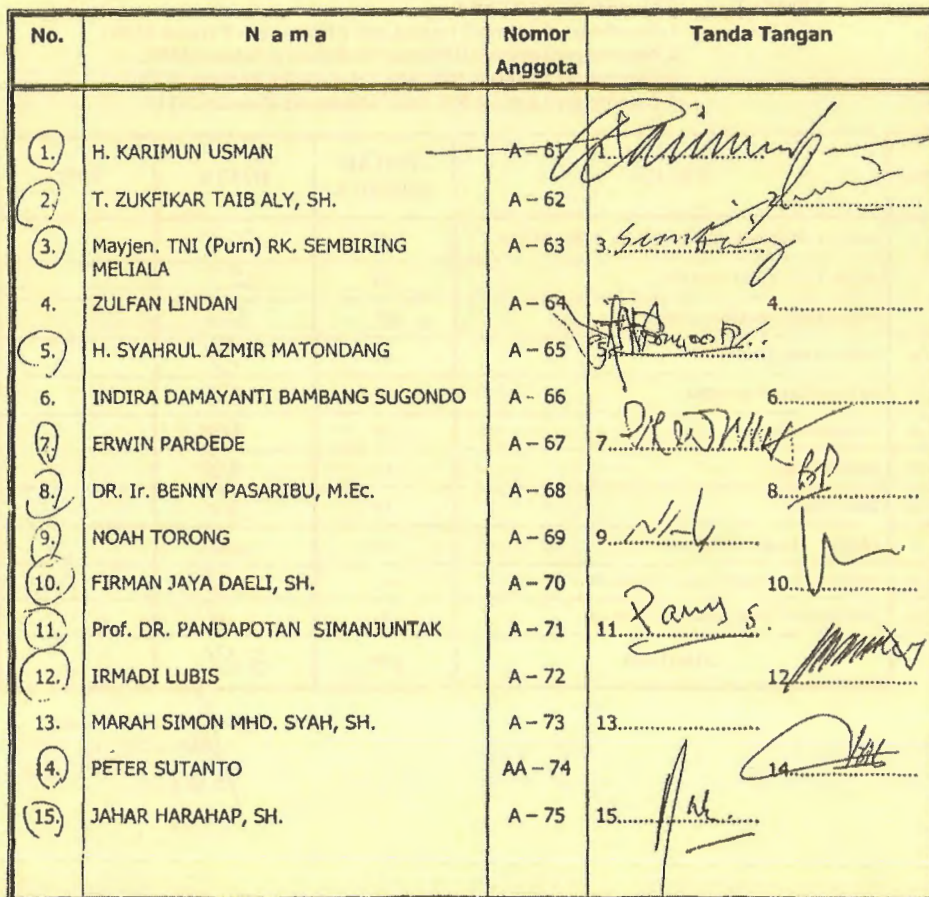 No. N a m a Nomor Anggota Tanda Tangan
1. H. KARIMUN USMAN A – 61 1.
2. T. ZUKFIKAR TAIB ALY, SH. A – 62 2.
3. Mayjen. TNI (Purn) RK. SEMBIRING A – 63 3. Sembiring
MELIALA
4. ZULFAN LINDAN A – 64 4.
5. H. SYAHRUL AZMIR MATONDANG A – 65 5.
6. INDIRA DAMAYANTI BAMBANG SUGONDO A - 66 6.
7. ERWIN PARDEDE A – 67 7.
8. DR. Ir. BENNY PASARIBU, M.Ec. A – 68 8. BP
9. NOAH TORONG A – 69 9.
10. FIRMAN JAYA DAELI, SH. A – 70 10.
11. Prof. DR. PANDAPOTAN SIMANJUNTAK A – 71 11.
12. IRMADI LUBIS A – 72 12.
13. MARAH SIMON MHD. SYAH, SH. A – 73 13.
14. PETER SUTANTO AA – 74 14.
15. JAHAR HARAHAP, SH. A – 75 15.